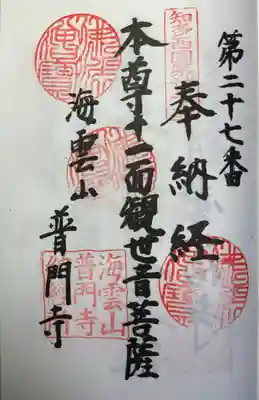 第二十七番
奉納経
本尊十一面観世音菩薩
海雲山
普門寺
海雲山
普門寺